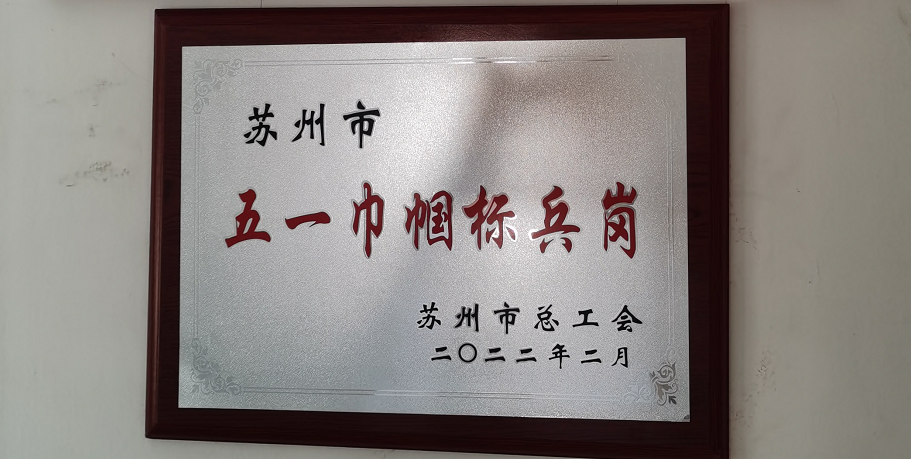 苏州市
五一巾帼标兵岗
苏州市总工会
二〇二二年二月